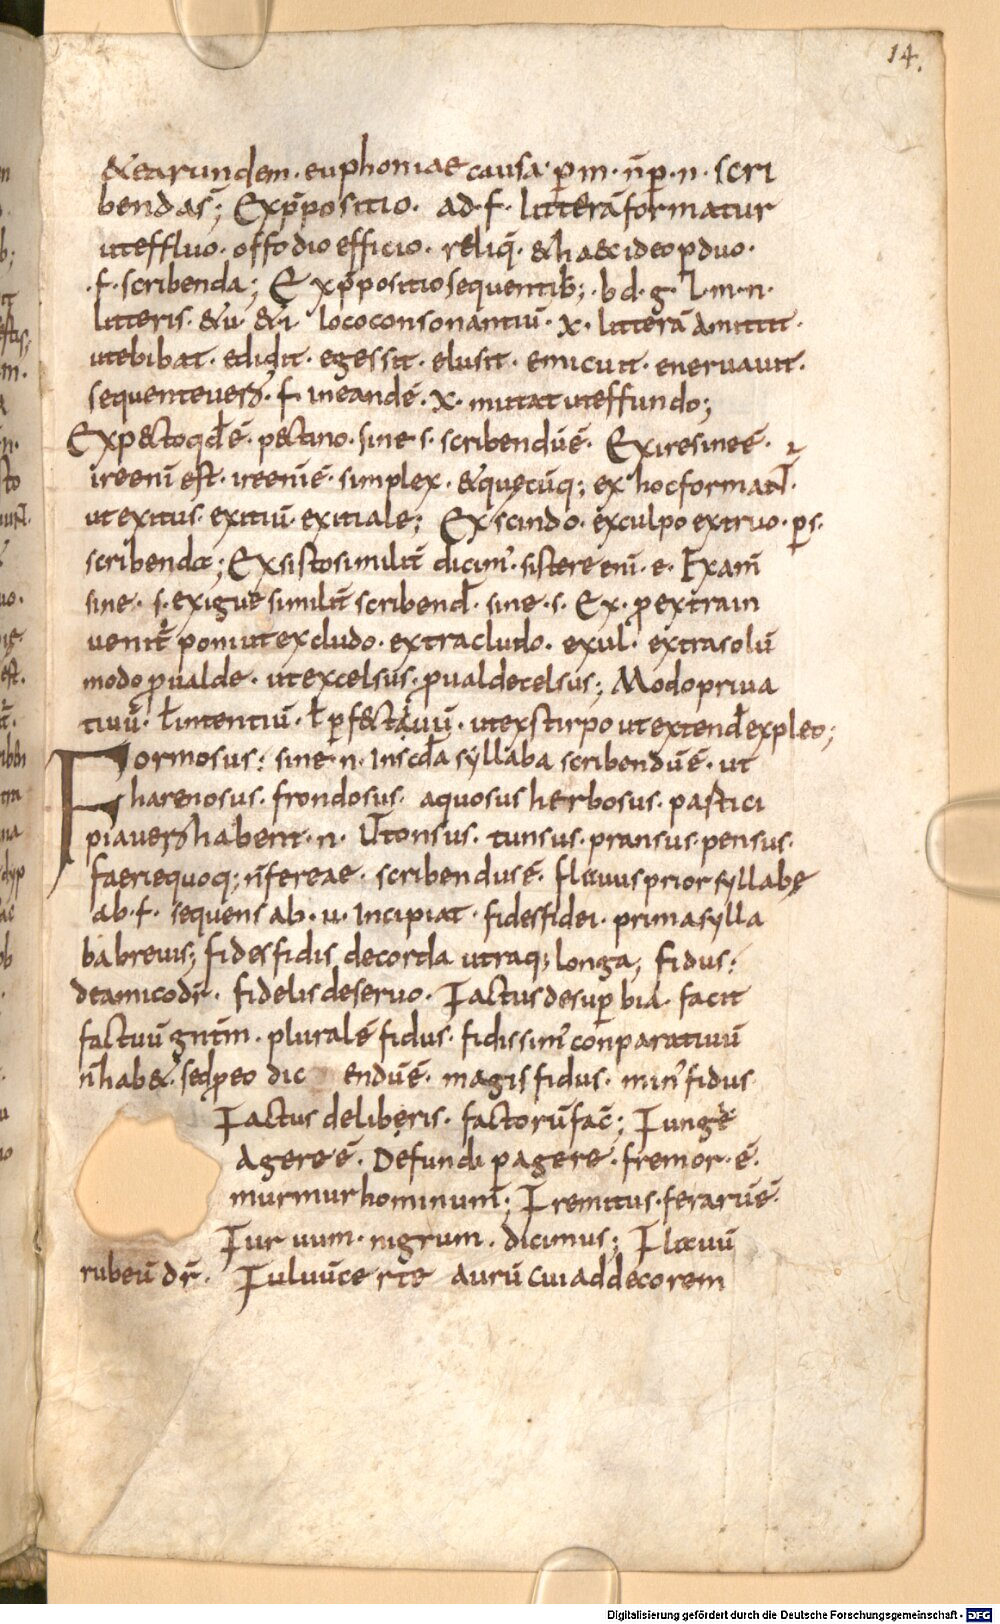 14.
&earundem. euphoniae causa. p̱ m. n̄ p̱. n. scri
bendas; Exp̄positio. ad. f. litterā formatur
uteffluo. offodio efficio. reliq̄. & haec ideo p duo.
.f. scribenda; Exp̄positio sequentib; . b d. g. l. m. n.
litteris. &u. &i loco consonantiū. x. litterā amittit.
utebibat. edidit. egessit. elusit. emicuit. eneruauit.
sequente uero. f. in eandē. x. mutat uteffundo;
Expecto qd ē. pectino. sine s. scribendū ē. Exire sine ē.
ire enī est. ire enī ē. simplex. &quęcūq; ex hoc format̄.
ut exitus. exitiū. exitiale; Exscindo. exculpo extruo. p̱ s.
scribenda; Exsisto similit̄ dicim'. sistere enī. e. Exam̄
sine. s. exigue similit̄ scribend. sine. s. Ex. p extra in
uenit̄ poni ut excludo. extra cludo. exul. extra solū
modo p ualde. ut excelsus. p ualde celsus; Modo priua
tiuū. l intentiū. l p̱fectiuū. ut exstirpo ut extend expleo;
Formosus: sine. n. in scda syllaba scribendū ē. ut
harenosus. frondosus. aquosus herbosus. partici
pia uero habent. n. Ut tonsus. tunsus. pransus. pensus.
faeriequoq; n̄ fereae. scribendus ē. flauus prior syllabę
ab. f. sequens ab. u. incipiat. fides fidei. prima sylla
ba breuis; fides fidis de corda utraq; longa; fidus:
de amico dr̄. fidelis de seruo. Factus de sup̱bia. facit
factuū gntm. pluralē fidus. fidissim' conparatiuū
n̄ hab&. sed p eo dic endū ē. magis fidus. min' fidus
Factus de liberis. factorū fac̄; Funge
agere ē. Defundi pagere. fremor. ē.
murmur hominum; Fremitus. ferarū ē.
Furuum. nigrum. dicimus; Flauū
rubeū dr̄. Fuluū certe aurū cui ad decorem
Digitalisierung gefördert durch die Deutsche Forschungsgemeinschaft - DFG